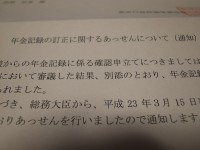 年金記録の訂正に関するあっせんについて（通知）
からの年金記録に係る確認申立てにつきましては
において審議した結果、別添のとおり、年金記録
られました。
づき、総務大臣から、平成23年3月15日
おりあっせんを行いましたので通知します